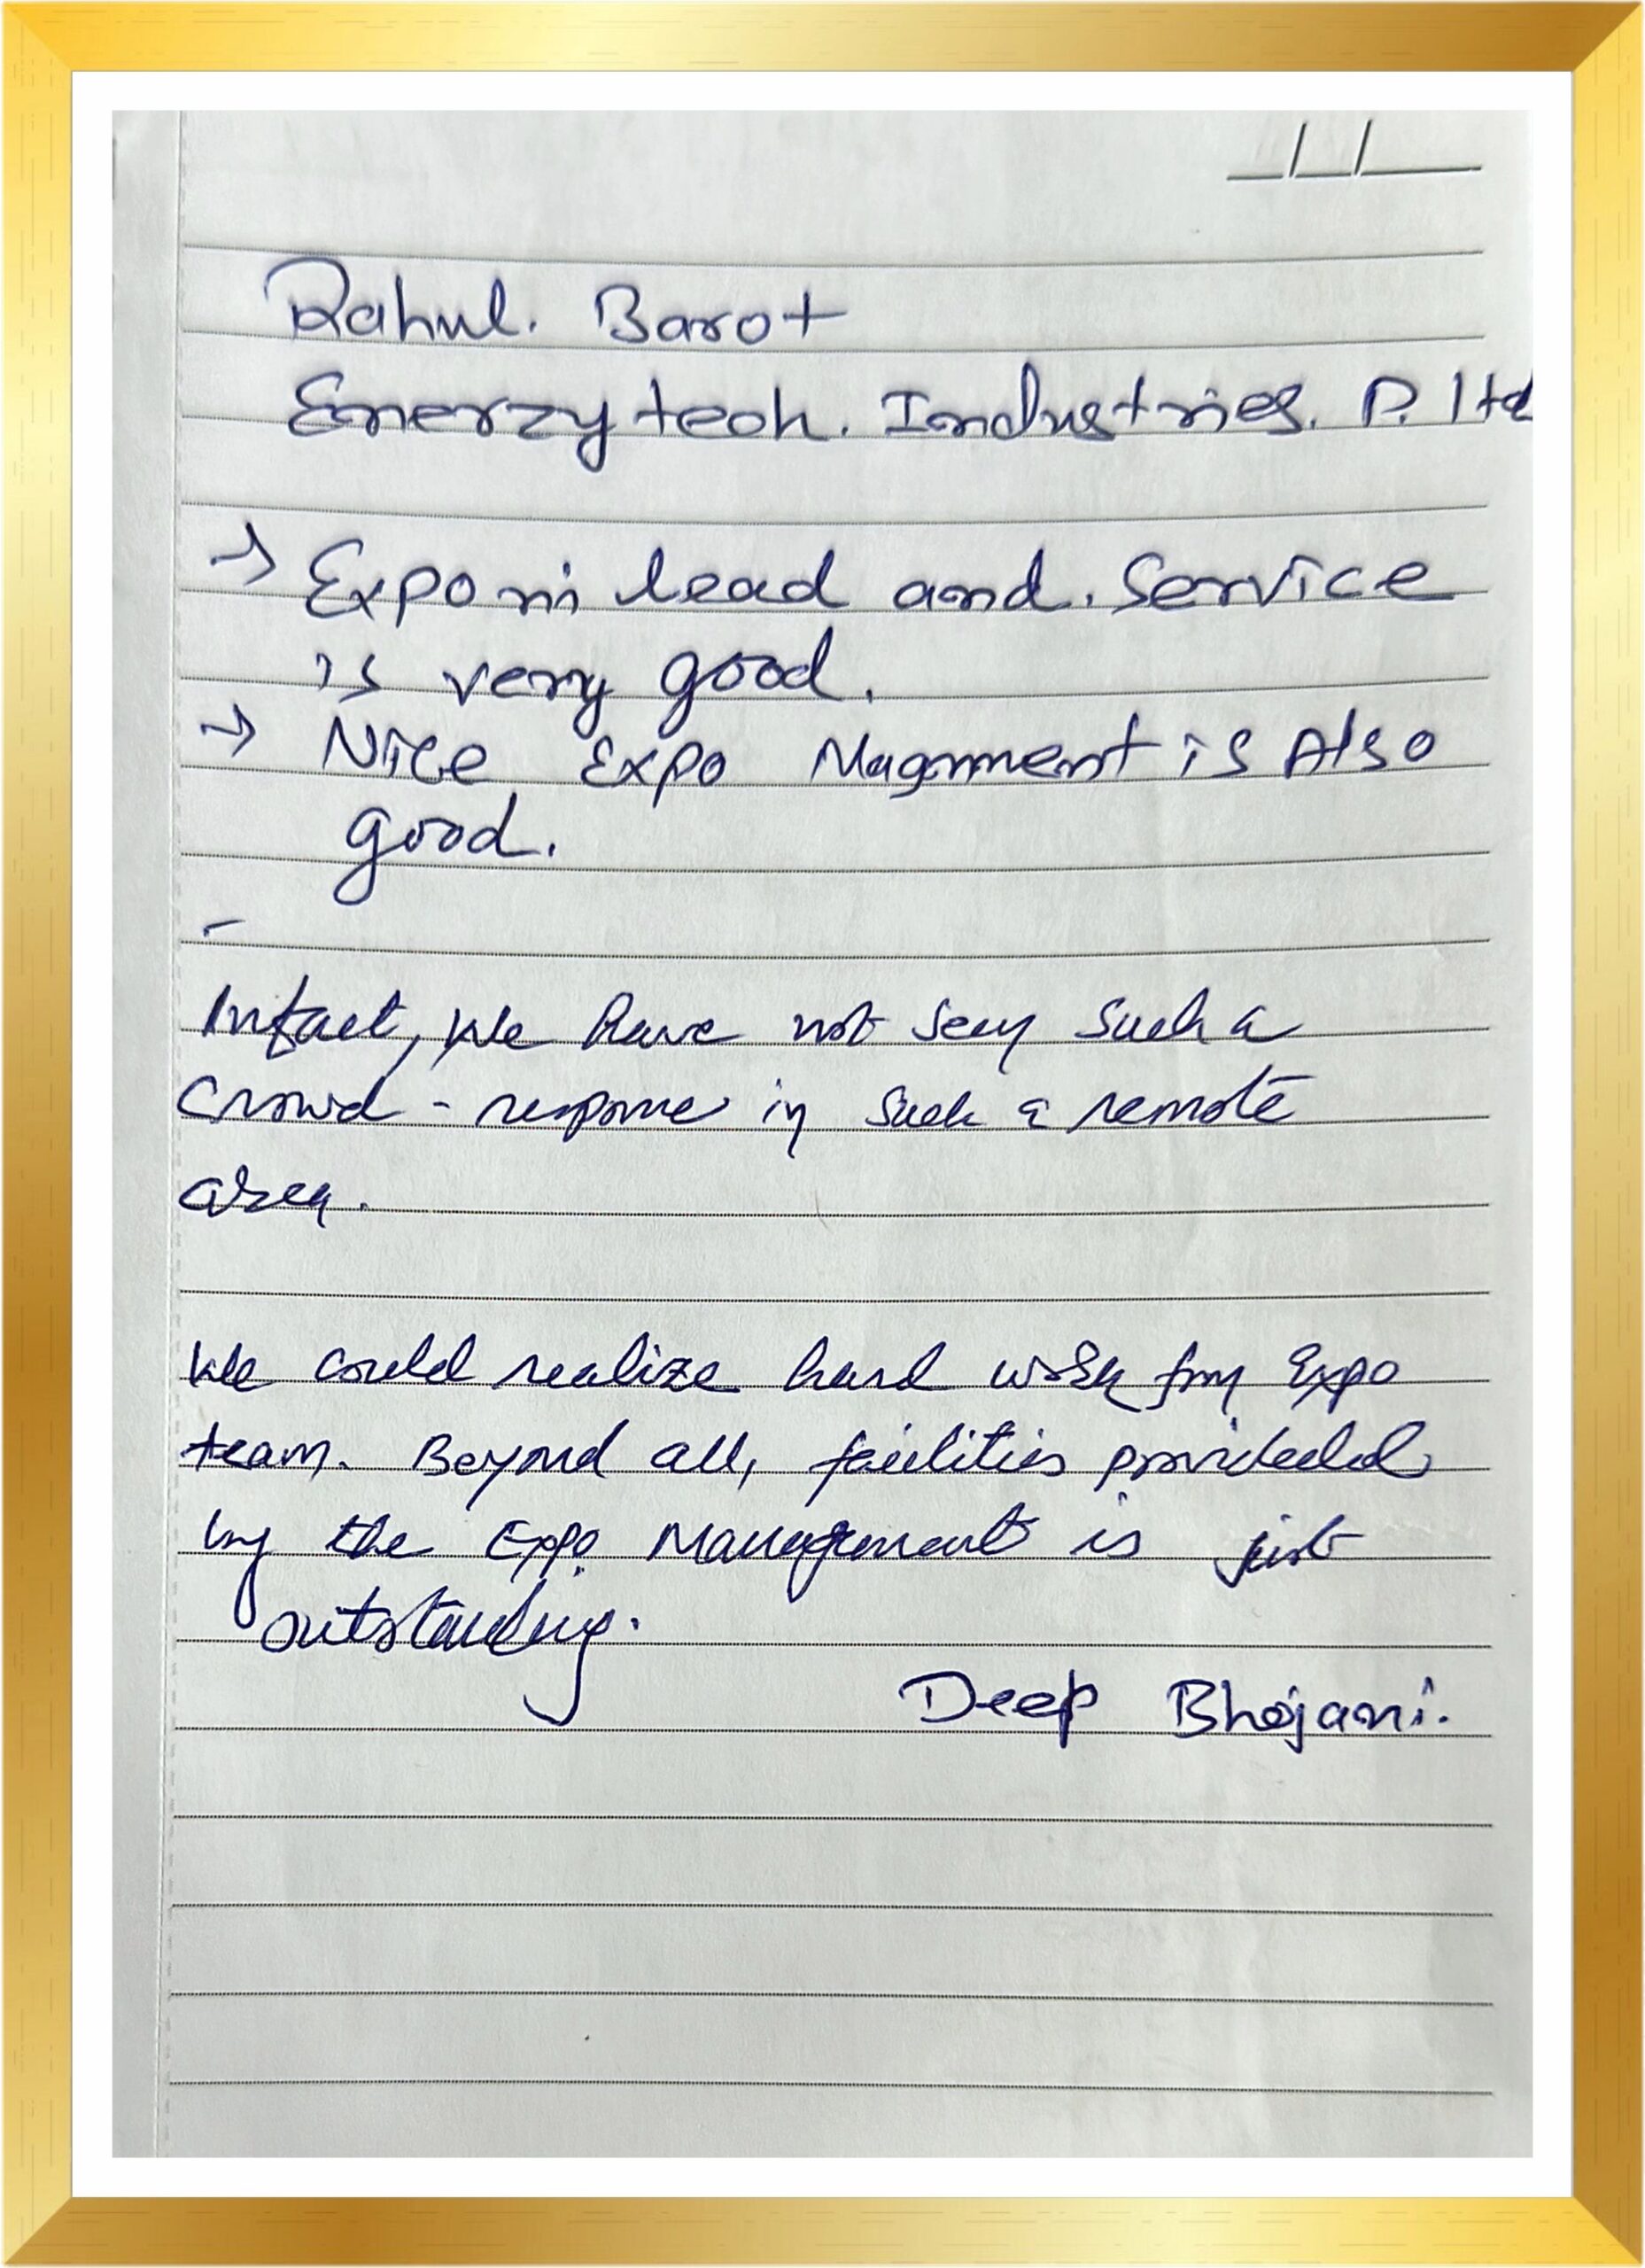 Rahul. Barot
Enerzytech. Industries. P. ltd
→ Expo ni lead and. Service
is very good.
→ Nice Expo Magnment is Also
good.
-
Infact, We have not seen such a
crowd - response in such a remote
area.
We could realize hard work from Expo
team. Beyond all, facilities provideded
by the Expo Management is just
outstanding.
Deep Bhojani.